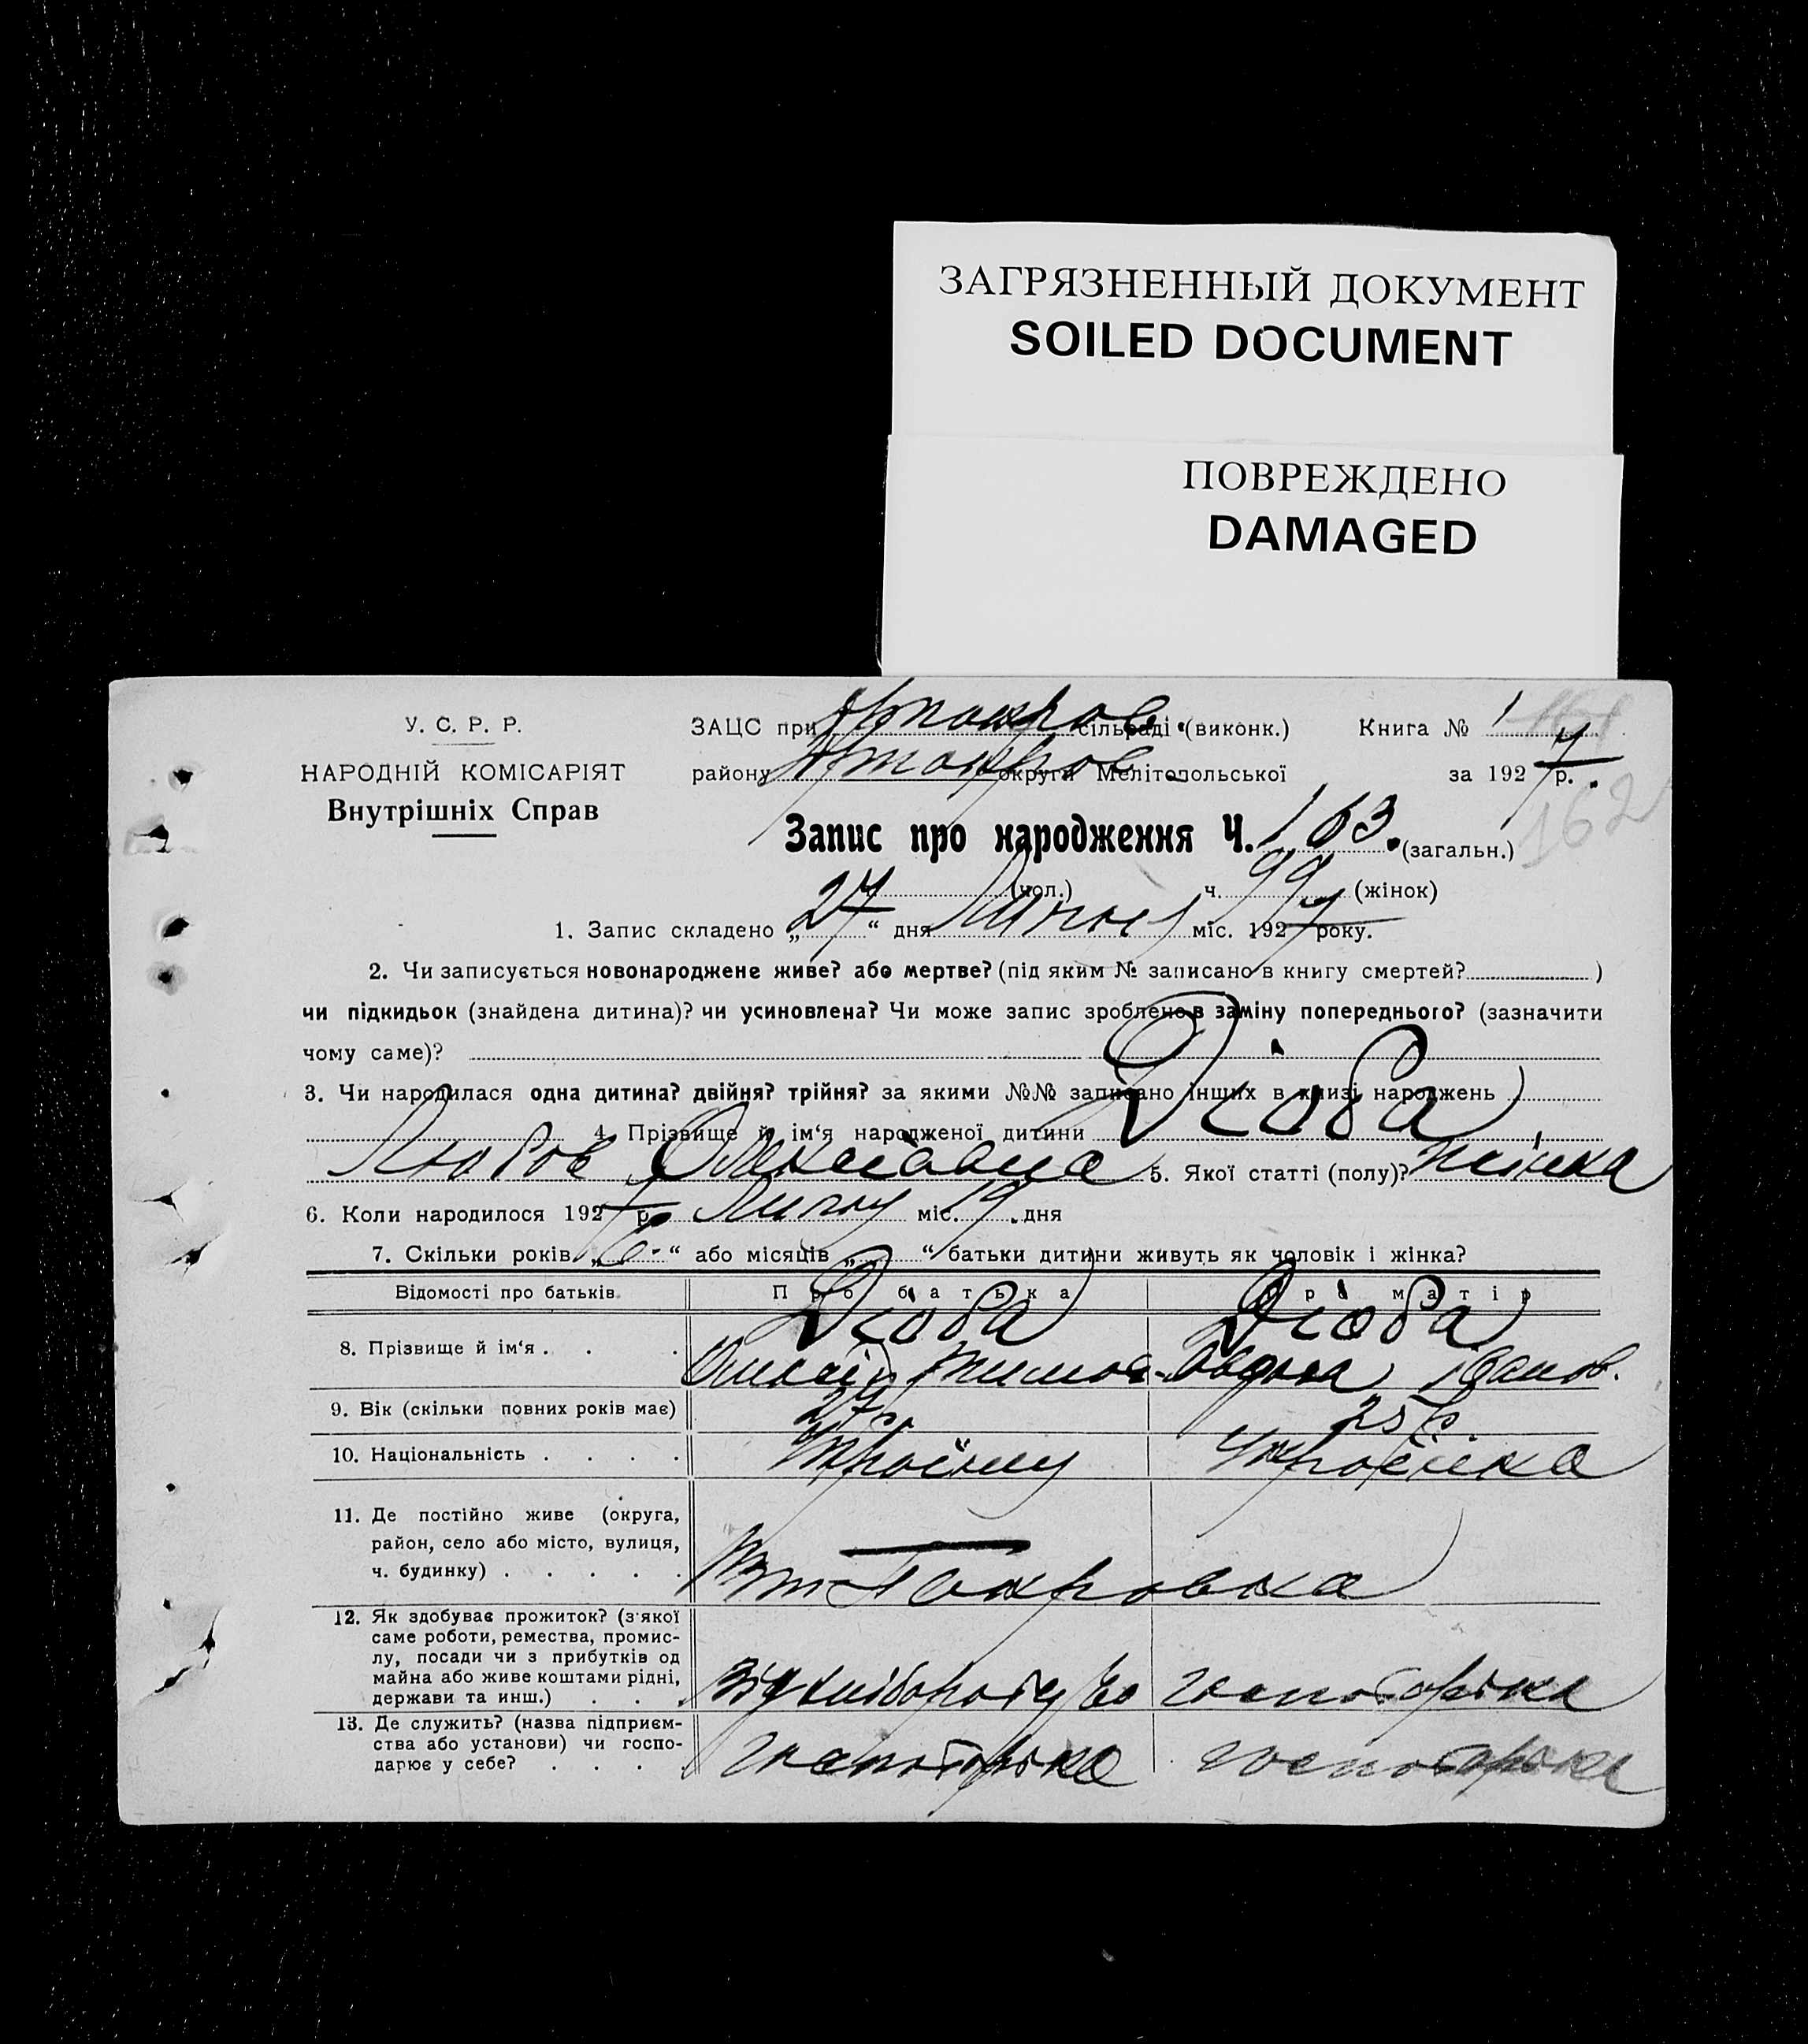 ЗАГРЯЗНЕННЫЙ ДОКУМЕНТ
SOILED DOCUMENT
ПОВРЕЖДЕНО
DAMAGED
У. С. Р. Р.
НАРОДНІЙ КОМІСАРІЯТ
Внутрішніх Справ
ЗАЦС при сільраді (виконк.) Книга № 1
району округи Мелітопольської за 1927 р.
162
Запис про народження Ч. 163. (загальн.)
(чол.) ч. 99 (жінок)
1. Запис складено „27“ дня Липня міс. 1927 року.
2. Чи записується новонароджене живе? або мертве? (під яким № записано в книгу смертей? )
чи підкидьок (знайдена дитина)? чи усиновлена? Чи може запис зроблено в заміну попереднього? (зазначити
чому саме)?
3. Чи народилася одна дитина? двійня? трійня? за якими №№ записано інших в книзі народжень
4. Прізвище й ім‘я народженої дитини Дзюба
Любов Олексіївна 5. Якої статті (полу)? жінка
6. Коли народилося 1927 р. міс. 19 дня
7. Скільки років „6“ або місяців „ “ батьки дитини живуть як чоловік і жінка?
Відомості про батьків Про батька Про матір
8. Прізвище й ім‘я . . . Дзюба Дзюба
Олексій Тимов. Іванов.
9. Вік (скільки повних років має) 27 р. 25 р.
10. Національність . . . . Українка
11. Де постійно живе (округа,
район, село або місто, вулиця,
ч. будинку) . . . . . Покровка
12. Як здобуває прожиток? (з якої
саме роботи, ремества, промис-
лу, посади чи з прибутків од
майна або живе коштами рідні,
держави та инш.) . . . Від хліборобства господарка
13. Де служить? (назва підприєм-
ства або установи) чи госпо-
дарює у себе? . . . . господарка господарка